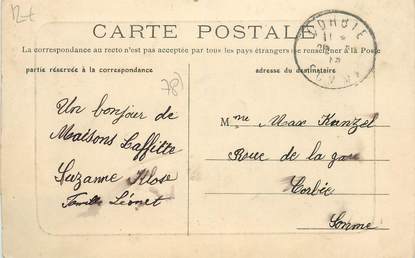 12+
CARTE POSTALE
La correspondance au recto n'est pas acceptée par tous les pays étrangers se renseigner à la Poste
partie réservée à la correspondance
adresse du destinataire
CORBIE
SOMME
78)
Un bonjour de
Maisons Laffitte
Suzanne Klose
Famille Léonet
Mme Max Kanzel
Rue de la gare
Corbie
Somme